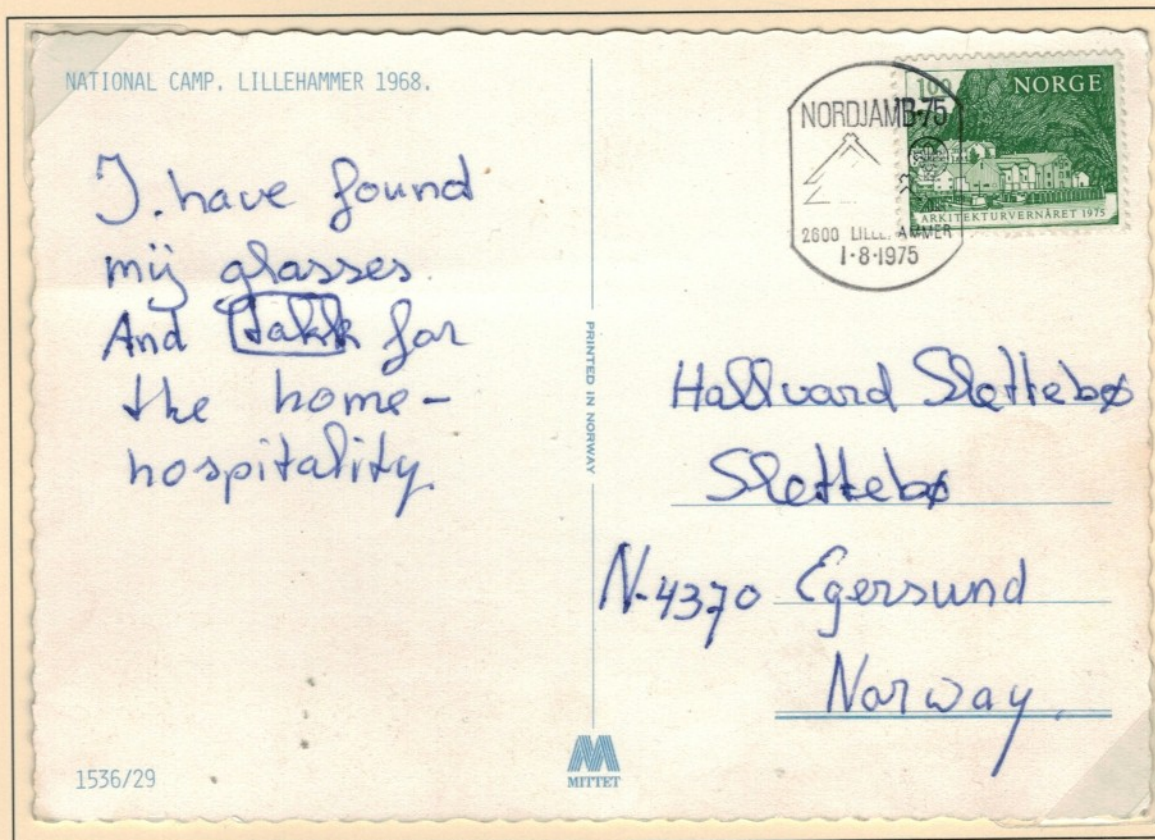 NATIONAL CAMP. LILLEHAMMER 1968.
I. have found
mij glasses.
And takk for
the home-
hospitality.
1536/29
PRINTED IN NORWAY
MITTET
NORDJAMB-75
2600 LILLEHAMMER
1-8-1975
100 NORGE
ARKITEKTURVERNÅRET 1975
Hallvard Slettebø
Slettebø
N-4370 Egersund
Norway.